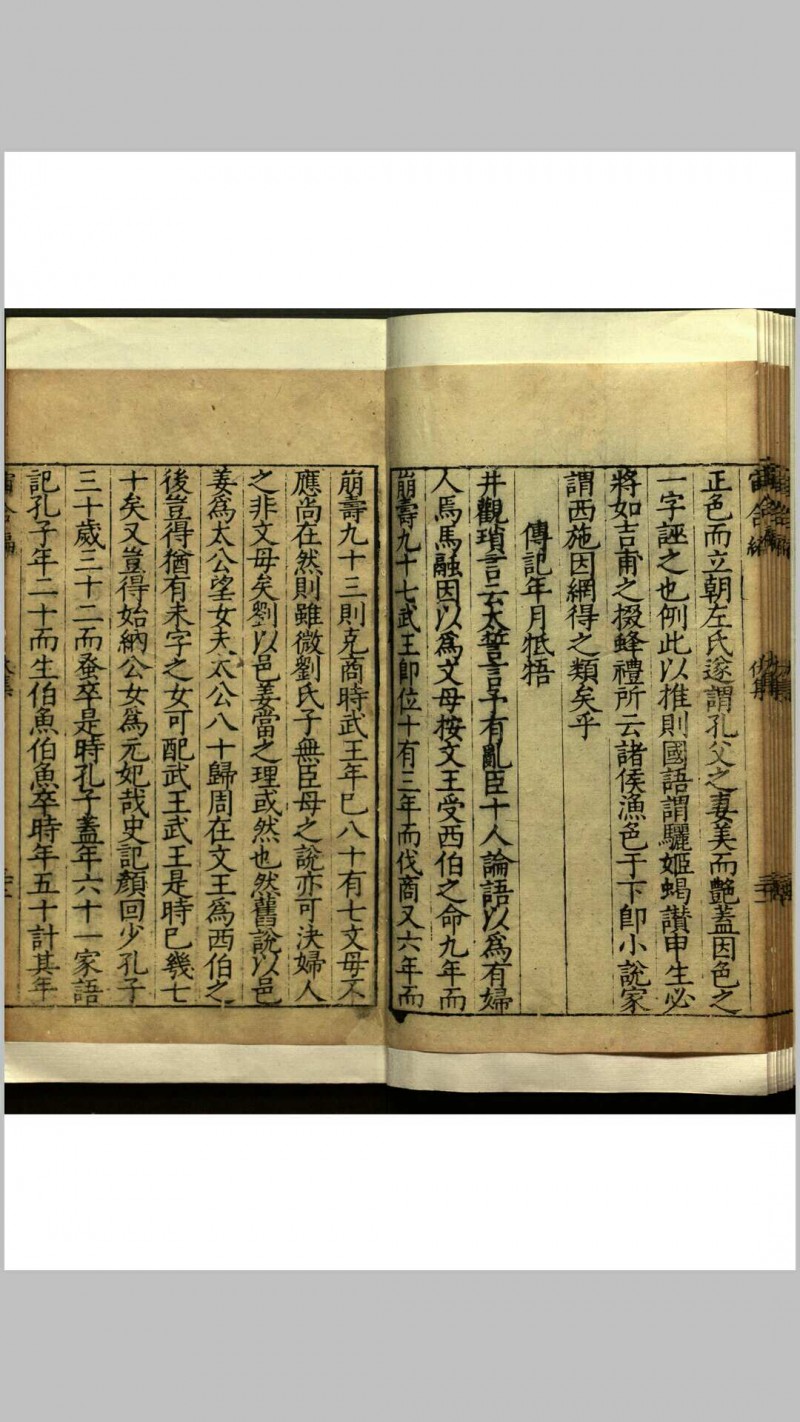 正色而立朝左氏遂謂孔父之妻美而艷蓋因色之
一字誣之也例此以推則國語謂驪姬蝎讃申生必
將如吉甫之掇蜂禮所云諸侯漁色于下卽小說家
謂西施因網得之類矣乎
傳記年月牴牾
井觀瑣言云太誓言予有亂臣十人論語以爲有婦
人焉馬融因以爲文母按文王受西伯之命九年而
崩壽九十七武王卽位十有三年而伐商又六年而
崩壽九十三則克商時武王年巳八十有七文母不
應尚在然則雖微劉氏子無臣母之說亦可決婦人
之非文母矣劉以邑姜當之理或然也然舊說以邑
姜爲太公望女夫太公八十歸周在文王爲西伯之
後豈得猶有未字之女可配武王武王是時巳幾七
十矣又豈得始納公女爲元妃哉史記顏回少孔子
三十歲三十二而蚤卒是時孔子蓋年六十一家語
記孔子年二十而生伯魚伯魚卒時年五十計其年